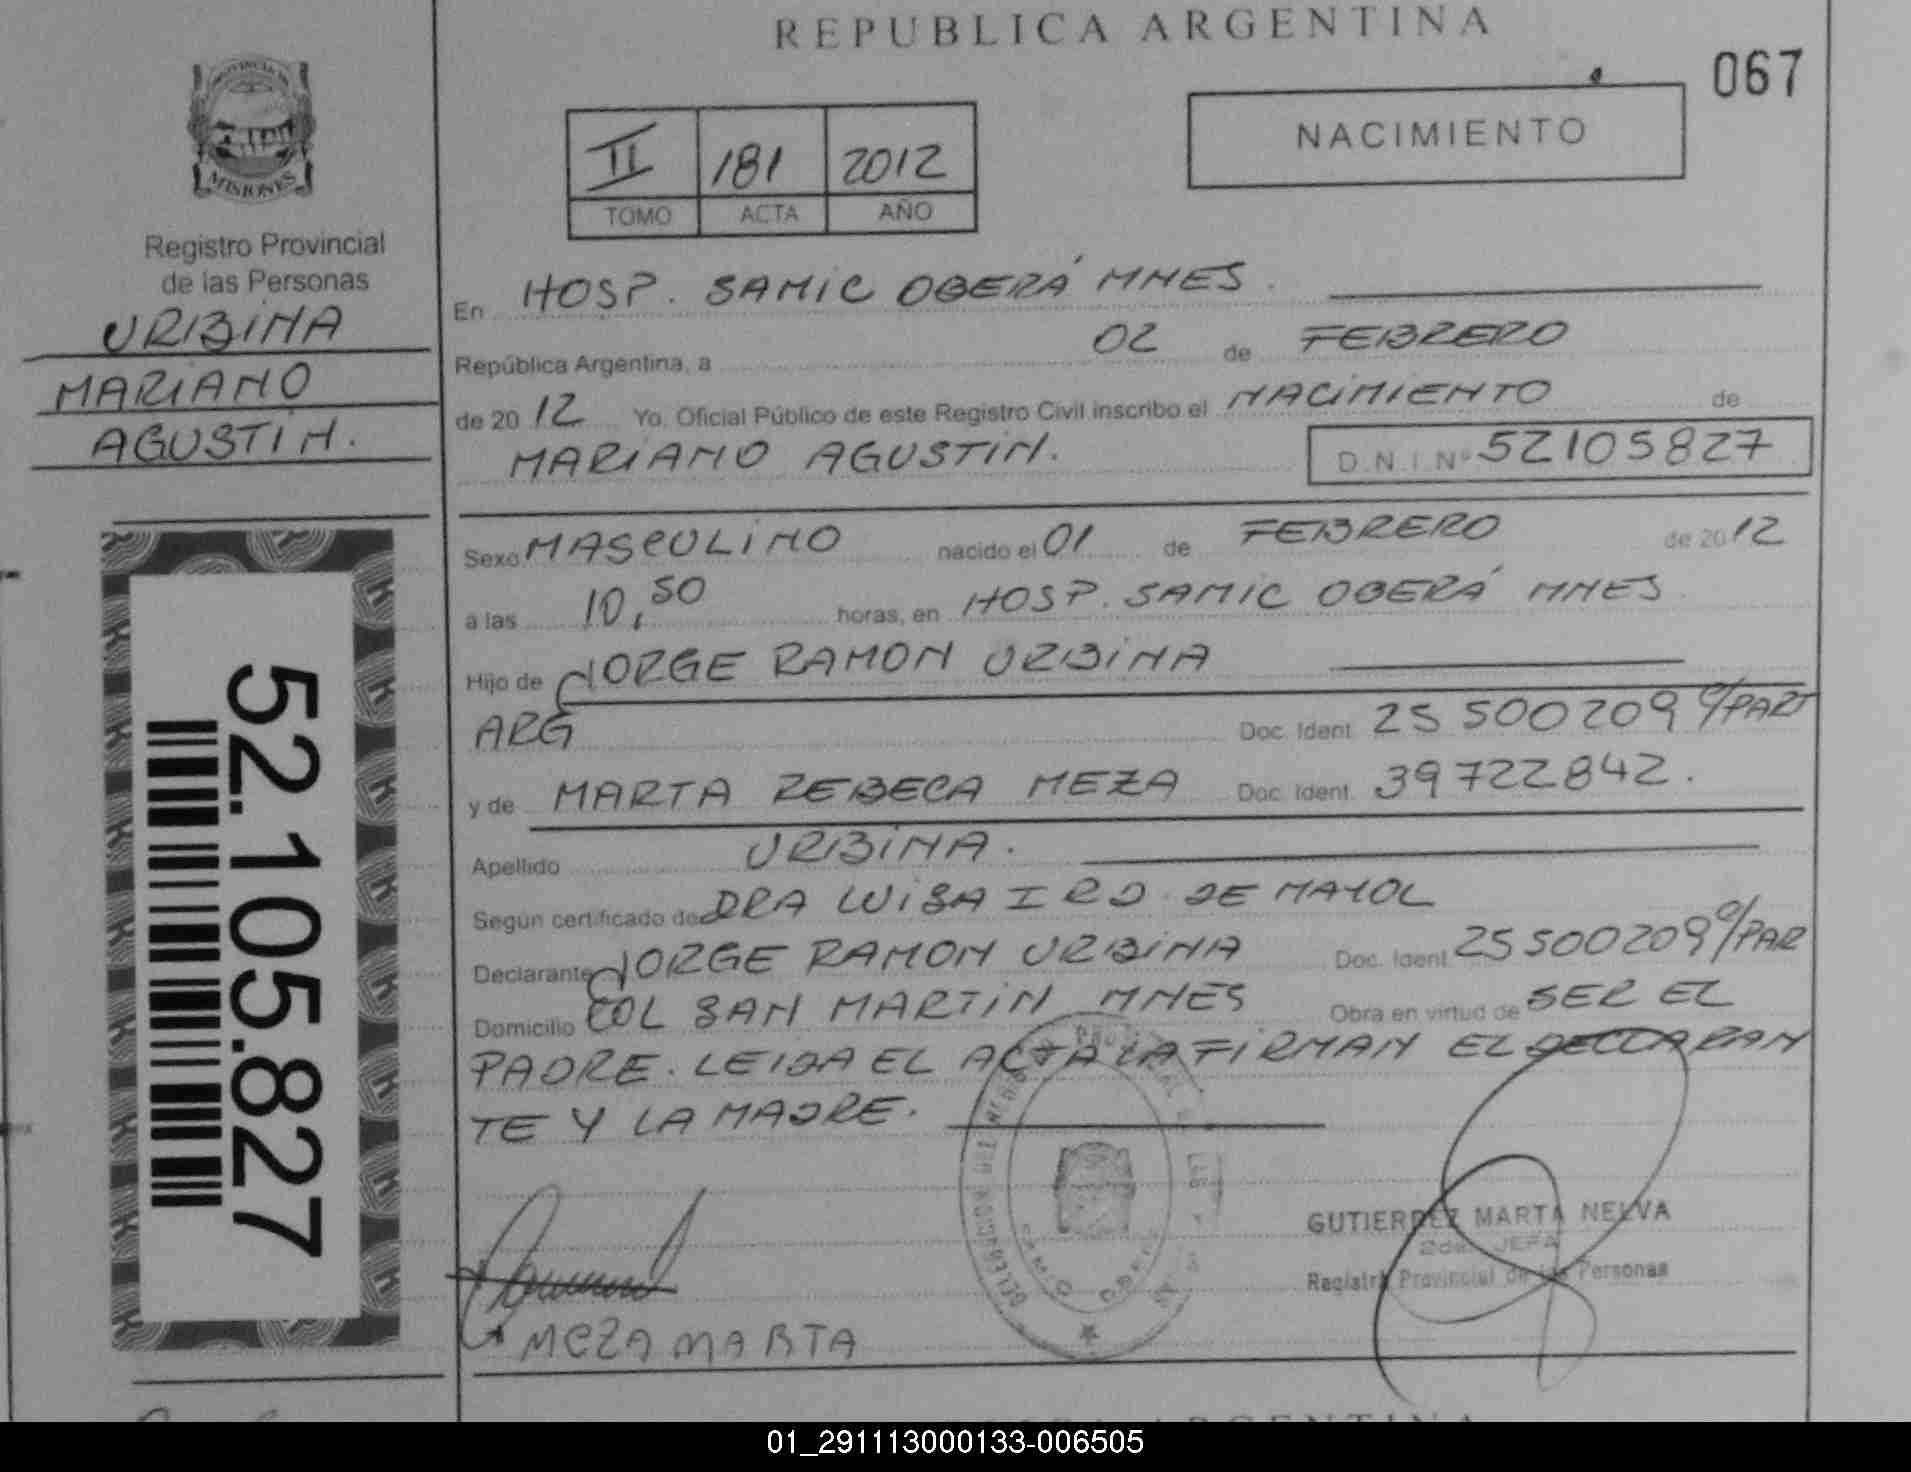 REPUBLICA ARGENTINA
067
PROVINCIA DE
MISIONES
Registro Provincial
de las Personas
URBINA
MARIANO
AGUSTIN.
52.105.827
II 181 2012
TOMO ACTA AÑO
NACIMIENTO
En HOSP. SAMIC OBERÁ MNES.
República Argentina, a 02 de FEBRERO
de 2012 Yo, Oficial Público de este Registro Civil inscribo el NACIMIENTO de
MARIANO AGUSTIN. D.N.I. Nº 52105827
Sexo MASCULINO nacido el 01 de FEBRERO de 2012
a las 10,50 horas, en HOSP. SAMIC OBERÁ MNES
Hijo de JORGE RAMON URBINA
ARG Doc. Ident. 25 500 209 C/PART
y de MARTA REBECA MEZA Doc. Ident. 39 722 842.
Apellido URBINA.
Según certificado de DRA LUISA I RD. DE MAYOL
Declarante JORGE RAMON URBINA Doc. Ident. 25 500 209 C/PAR
Domicilio COL SAN MARTIN MNES Obra en virtud de SER EL
PADRE. LEIDA EL ACTA LA FIRMAN EL DECLARAN
TE Y LA MADRE.
GUTIERREZ MARTA NELVA
2da. JEFA
Registro Provincial de las Personas
MEZA MARTA
01_291113000133-006505